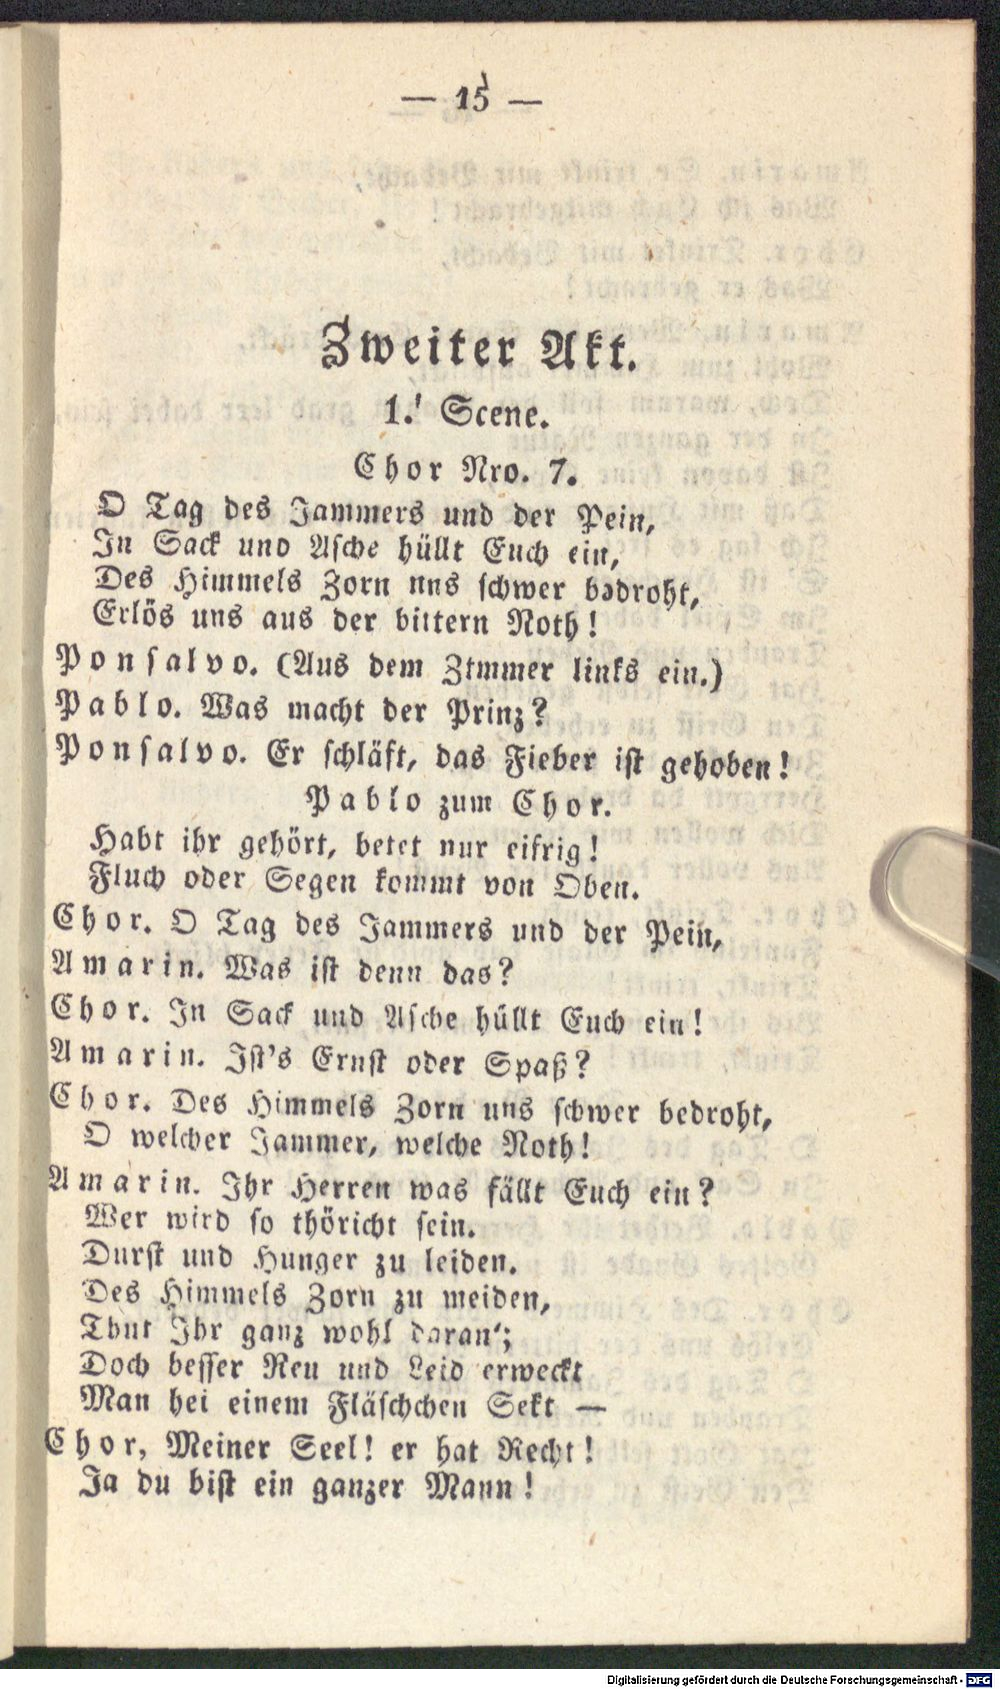 — 15 —
Zweiter Akt.
1. Scene.
Chor Nro. 7.
O Tag des Jammers und der Pein,
In Sack und Asche hüllt Euch ein,
Des Himmels Zorn nns schwer bedroht,
Erlös uns aus der bittern Noth!
Ponsalvo. (Aus dem Zimmer links ein.)
Pablo. Was macht der Prinz?
Ponsalvo. Er schläft, das Fieber ist gehoben!
Pablo zum Chor.
Habt ihr gehört, betet nur eifrig!
Fluch oder Segen kommt von Oben.
Chor. O Tag des Jammers und der Pein,
Amarin. Was ist denn das?
Chor. In Sack und Asche hüllt Euch ein!
Amarin. Ist's Ernst oder Spaß?
Chor. Des Himmels Zorn uns schwer bedroht,
O welcher Jammer, welche Noth!
Amarin. Ihr Herren was fällt Euch ein?
Wer wird so thöricht sein.
Durst und Hunger zu leiden.
Des Himmels Zorn zu meiden,
Thut Ihr ganz wohl daran';
Doch besser Reu und Leid erweckt
Man hei einem Fläschchen Sekt —
Chor, Meiner Seel! er hat Recht!
Ja du bist ein ganzer Mann!
Digitalisierung gefördert durch die Deutsche Forschungsgemeinschaft - DFG